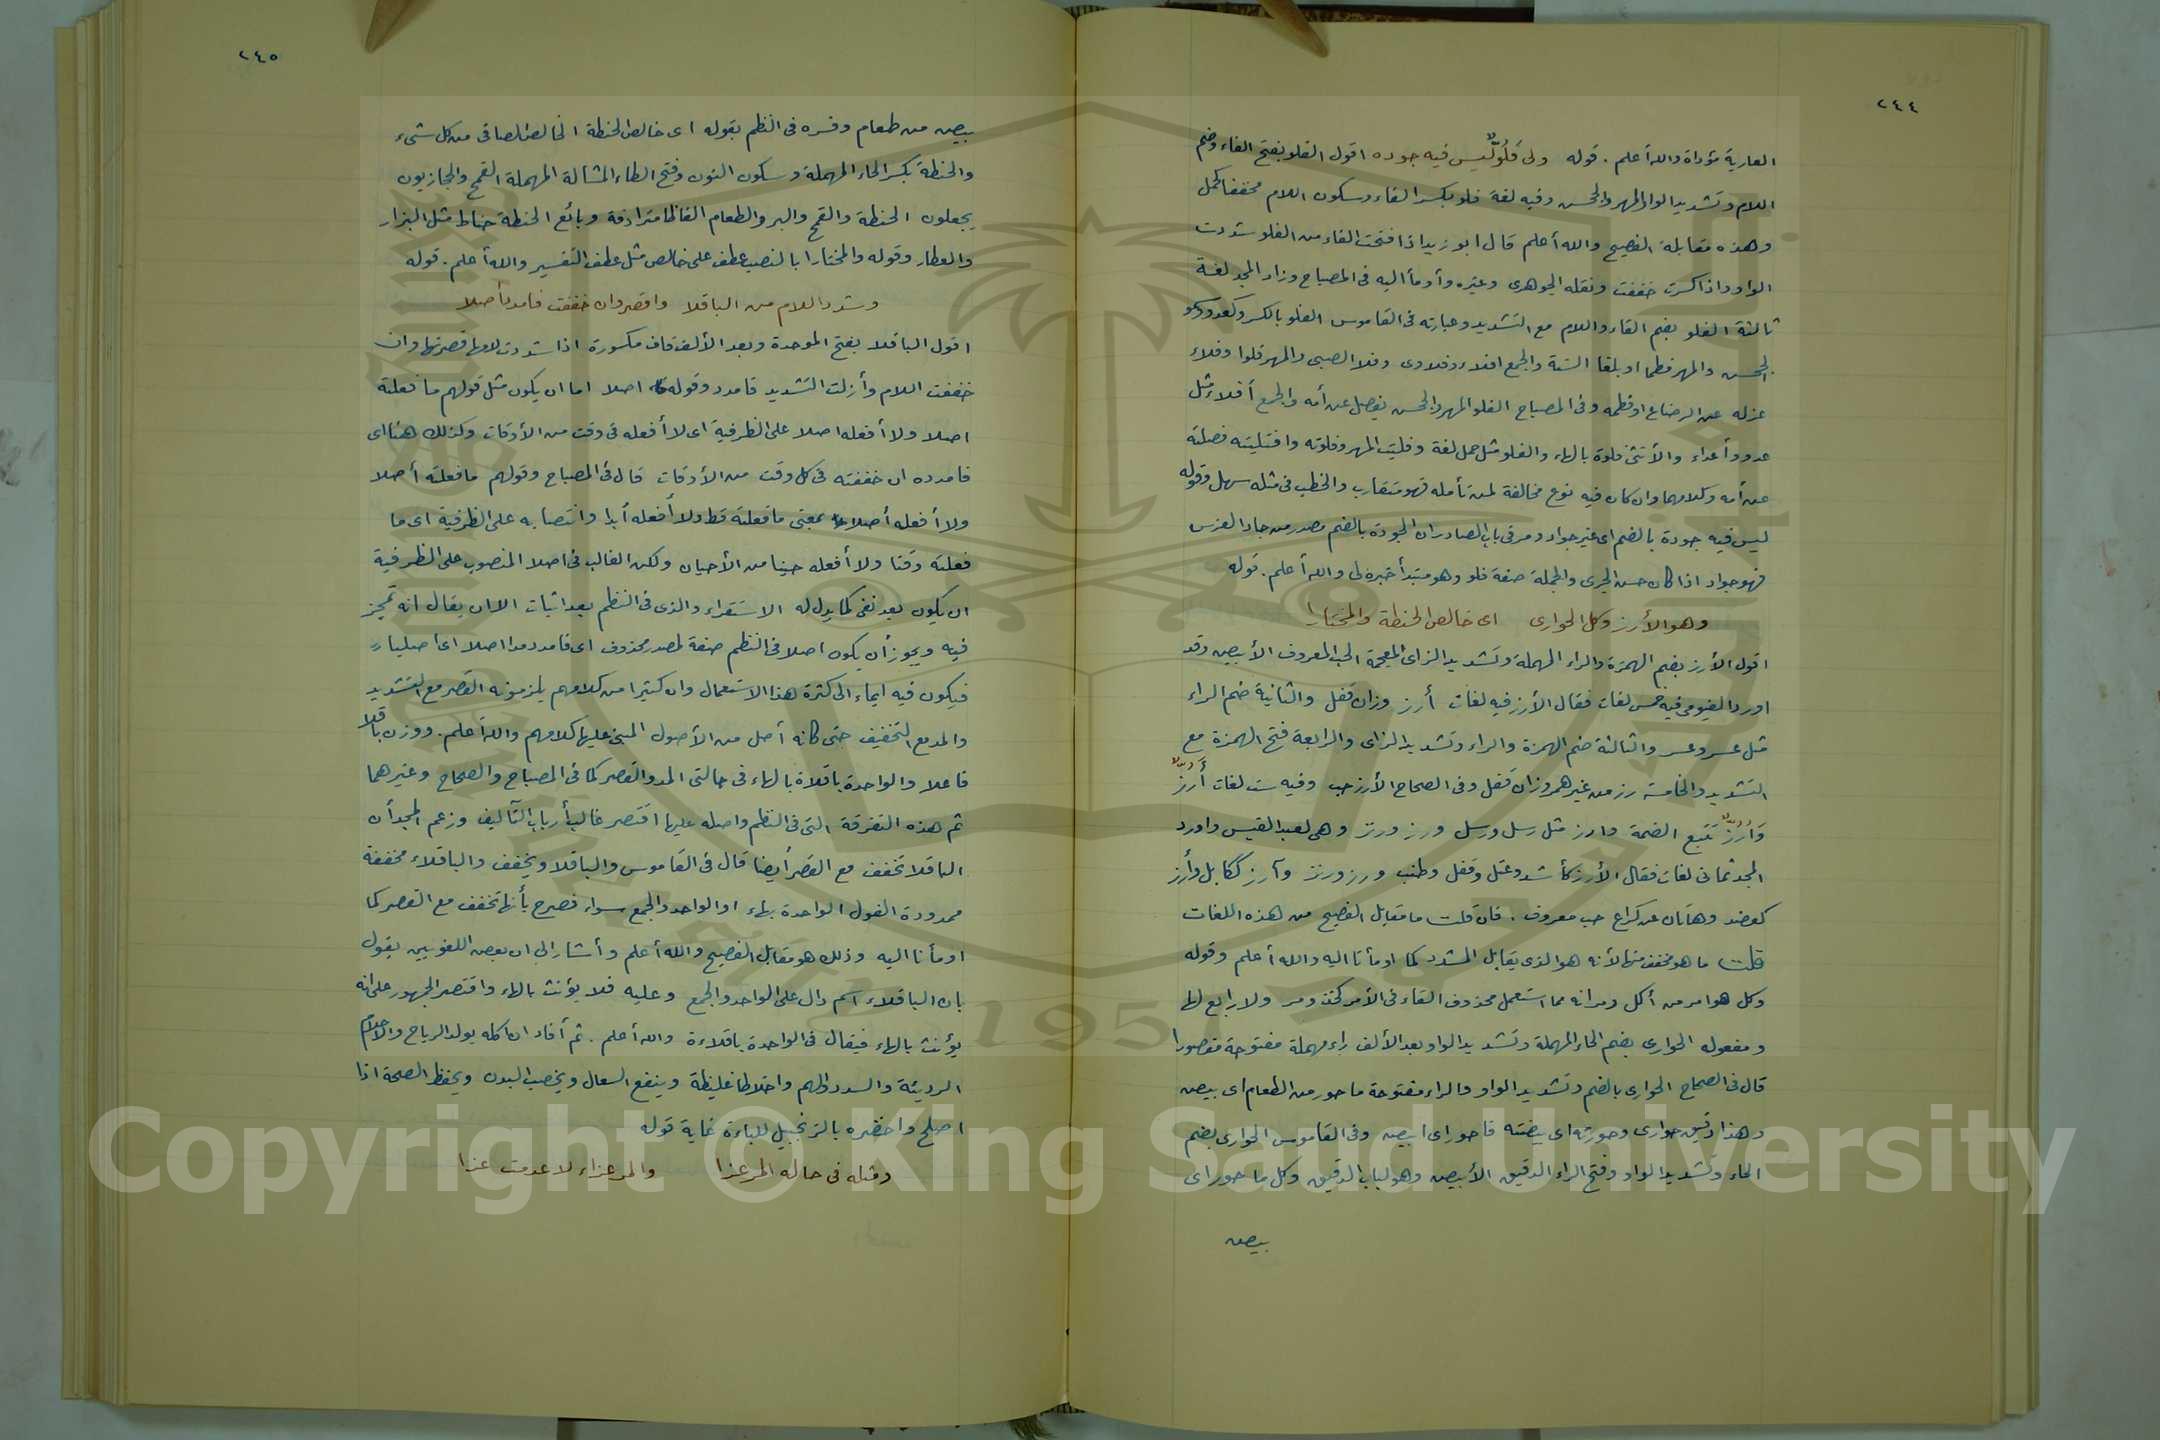 ٢٤٤
العارية مؤداة والله أعلم. قوله ولى فَلُوٌّ ليس فيه جوده اقول الفلو بفتح الفاء وضم
اللام وتشديد الواو المهر والجحش وفيه لغة فلو بكسر الفاء وسكون اللام مخففا كحمل
وهذه مقابلة الفصيح والله أعلم قال ابو زيد اذا فتحت الفاء من الفلو شددت
الواو واذا كسرت خففت ونقله الجوهرى وغيره وأومأ اليه فى المصباح وزاد المجد لغة
ثالثة الفلو بضم الفاء واللام مع التشديد وعبارته فى القاموس الفلو بالكسر وكعدو وسمو
الجحش والمهر فطما او بلغا السنة والجمع افلاء وفلاوى وفلا الصبى والمهر فلوا وفلاء
عزله عن الرضاع او فطمه وفى المصباح الفلو المهر والجحش يفصل عن أمه والجمع أفلاء مثل
عدو وأعداء والأنثى فلوة بالهاء والفلو مثل حمل لغة وفليت المهر وفلوته وافتليته فصلته
عن أمه وكلامهما وان كان فيه نوع مخالفة لمن تأمله فهو متقارب والخطب فى مثله سهل وقوله
ليس فيه جودة بالضم اى غير جواد ومر فى باب المصادر ان الجودة بالضم مصدر من جاد الفرس
فهو جواد اذا كان حسن الجرى والجملة صفة فلو وهو مبتدأ خبره لى والله أعلم. قوله
وهو الأرز وكل الحوارى اى خالص الحنطة والمختارا
اقول الأرز بضم الهمزة والراء المهملة وتشديد الزاى المعجمة الحب المعروف الأبيض وقد
اورد الفيومى فيه خمس لغات فقال الأرز فيه لغات أرز وزان قفل والثانية ضم الراء
مثل عسر وعسر والثالثة ضم الهمزة والراء وتشديد الزاى والرابعة فتح الهمزة مع
التشديد والخامسة رز من غير همز وزان قفل وفى الصحاح الأرز حب وفيه ست لغات أَرُزٌّ
وَأُرُزٌّ تتبع الضمة وارز مثل رسل ورسل ورز ورنز وهى لعبد القيس واورد
المجد ثمانى لغات فقال الأرز كأشد وعتل وقفل وطنب ورز ورنز وآرز ككابل وأرز
كعضد وهاتان عن كراع حب معروف. فان قلت ما مقابل الفصيح من هذه اللغات
قلت ما هو مخفف منها لأنه هو الذى يقابل المشدد كما اومأنا اليه والله أعلم وقوله
وكل هو امر من أكل ومر انه مما استعمل محذوف الفاء فى الأمر كخذ ومر ولا رابع لها
ومفعوله الحوارى بضم الحاء المهملة وتشديد الواو وبعد الألف راء مهملة مفتوحة مقصورا
قال فى الصحاح الحوارى بالضم وتشديد الواو والراء مفتوحة ما حور من الطعام اى بيض
وهذا دقيق حوارى وحورته اى بيضته فاحور اى ابيض وفى القاموس الحوارى بضم
الحاء وتشديد الواو وفتح الراء الدقيق الأبيض وهو لباب الدقيق وكل ما حور اى
بيض
٢٤٥
بيض من طعام وفسره فى النظم بقوله اى خالص الحنطة الخالص الصافى من كل شىء
والحنطة بكسر الحاء المهملة وسكون النون وفتح الطاء المشالة المهملة القمح والحجازيون
يجعلون الحنطة والقمح والبر والطعام الفاظا مترادفة وبائع الحنطة حناط مثل البزار
والعطار وقوله والمختارا بالنصب عطف على خالص مثل عطف التفسير والله أعلم. قوله
وشدد اللام من الباقلا واقصر وان خففت فامدد أصلا
اقول الباقلا بفتح الموحدة وبعد الألف قاف مكسورة اذا شددت لامها قصرتها وان
خففت اللام وأزلت التشديد فامدد وقوله اصلا اما ان يكون مثل قولهم ما فعلته
اصلا ولا أفعله اصلا على الظرفية اى لا أفعله فى وقت من الأوقات وكذلك هنا اى
فامدده ان خففته فى كل وقت من الأوقات قال فى المصباح وقولهم ما فعلته أصلا
ولا أفعله أصلا بمعنى ما فعلته قط ولا أفعله أبدا وانتصابه على الظرفية اى ما
فعلته وقتا ولا أفعله حينا من الأحيان ولكن الغالب فى اصلا المنصوب على الظرفية
ان يكون بعد نفى كما يدل له الاستقراء والذى فى النظم بعد اثبات الا ان يقال انه تجيز
فيه ويجوز أن يكون اصلا فى النظم صفة لمصدر محذوف اى فامدد مدا اصلا اى اصليا
فيكون فيه ايماء الى كثرة هذا الاستعمال وان كثيرا من كلامهم يلزمونه القصر مع التشديد
والمد مع التخفيف حتى كانه أصل من الأصول المبنى عليها كلامهم والله أعلم. ووزن باقلا
فاعلا والواحدة باقلاة بالهاء فى حالتى المد والقصر كما فى المصباح والصحاح وغيرهما
ثم هذه التفرقة التى فى النظم واصله عليها اقتصر غالب أرباب التآليف وزعم المجد أن
الباقلا تخفف مع القصر أيضا قال فى القاموس والباقلا ويخفف والباقلاء مخففة
ممدودة الفول الواحدة بهاء او الواحد والجمع سواء فصرح بأنها تخفف مع القصر كما
اومأنا اليه وذلك هو مقابل الفصيح والله أعلم وأشار الى ان بعض اللغويين يقول
بان الباقلاء اسم دال على الواحد والجمع وعليه فلا يؤنث بالهاء واقتصر الجمهور على انه
يؤنث بالهاء فيقال فى الواحدة باقلاءة والله أعلم. ثم أفاد ان أكله يولد الرياح والأحلام
الرديئة والسدد والهم واخلاطا غليظة وينفع السعال ويخصب البدن ويحفظ الصحة اذا
اصلح واخضره بالزنجبيل للباءة غاية قوله
ومثله فى حاله المرعزا والمرعزاء لا عدمت عزا
Copyright © King Saud University
1957